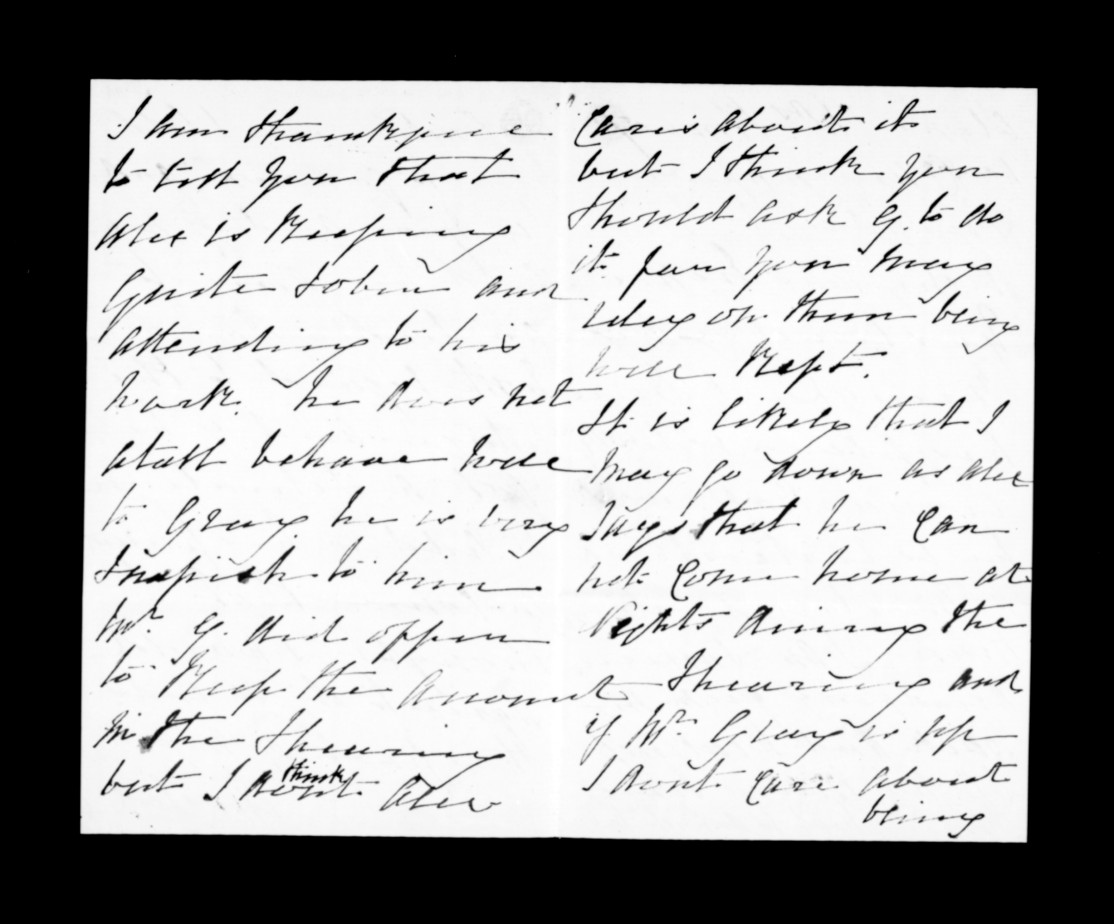 I am thankful
to tell you that
Alex is keeping
quite sober and
attending to his
work. he does not
atall behave well
to Gray he is very
snapish to him
Mr. G. did offer
to keep the account
in the Shearing
but I dont think Alex
cares about it
but I think you
should ask G. to do
it. for you may
reley on them being
well kept.
It is likely that I
may go down as Alex
says that he can
not come home at
Nights during the
Shearing and
if Mr. Gray is up
I dont care about
being